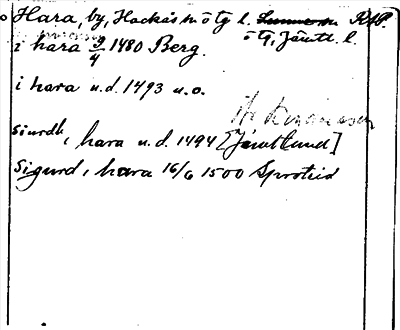 Hara, by, Hackås sn ö tg l. RAP.
ög, Jämtl. l.
i hara 9/4 1480 Berg.
i hara u.d. 1493 u.o.
siurdh, hara u.d. 1494 [Jämtland]
Sigurd, hara 16/6 1500 Sproteid